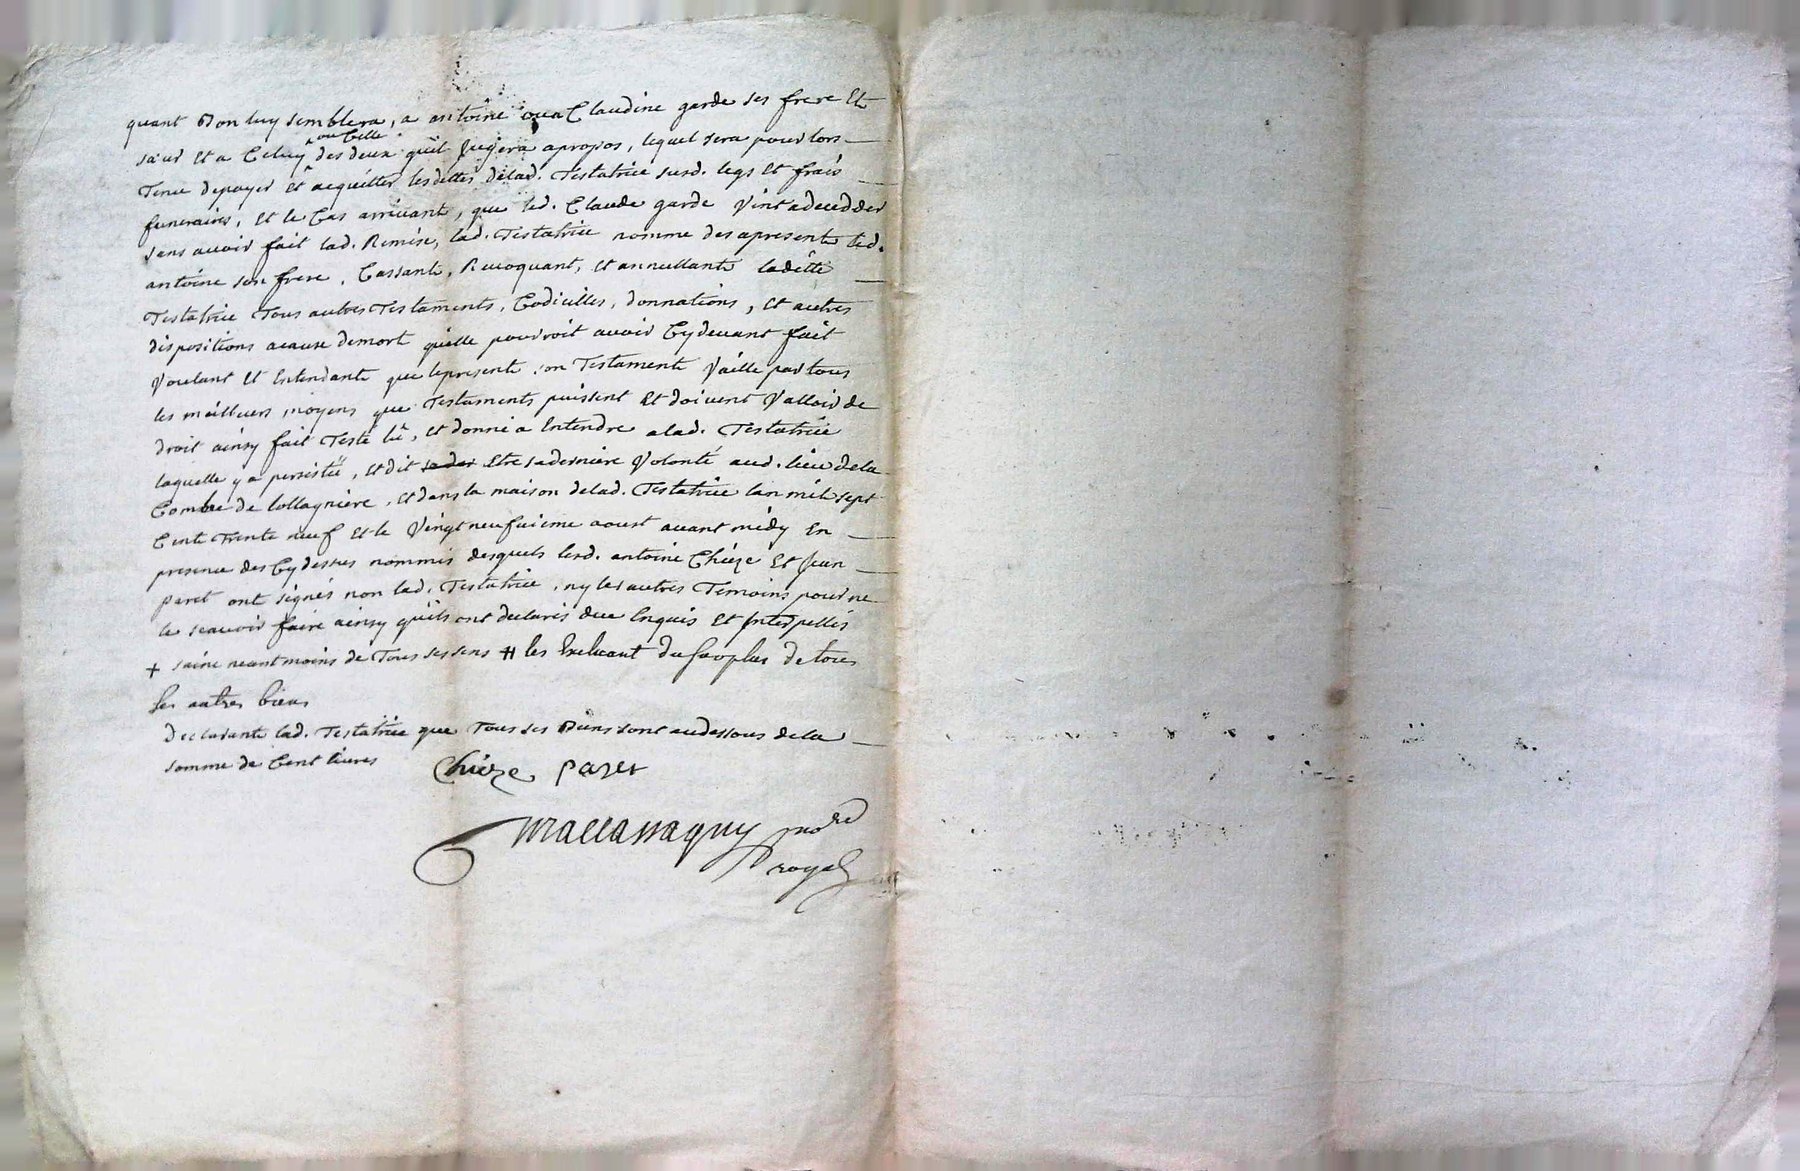 quant Bon luy semblera, a antoine ou a Claudine garde ses frere Et
sœur Et a Celuy ou Celle des deux qu'il Jugera apropos, lequel sera pour lors
Tenu depayer Et acquitter lesdettes delad. Testatrice susd. legs Et frais
funeraires, Et le Cas arrivant, que led. Claude garde Vint adecedder
sans avoir fait lad. Remise, lad. Testatrice nomme des apresent led.
antoine son frere, Cassant, Revoquant, Et annullante ladite
Testatrice Tous autres Testaments, Codicilles, donnations, Et autres
dispositions acause demort qu'elle pourroit avoir Cydevant fait
Voulant Et Entendante que lepresent son Testament Vaille par tous
les meilleurs moyens que Testaments puissent Et doivent Valloir de
droit ainsy fait Testé lû, Et donné a Entendre alad. Testatrice
laquelle y a persisté, Et dit Etre saderniere Volonté aud. lieu dela
Combe de lollagniere, Et dans la maison delad. Testatrice lan mil sept
Cent Trente neuf Et le Vingt neufuieme aoust avant midy En
presence des Cydessus nommés desquels lesd. antoine Chieze Et Jean
paret ont signés non lad. Testatrice, ny les autres Temoins pour ne
le scavoir faire ainsy qu'ils ont declarés due Enquis Et Interpellés
+ saine neantmoins de Tous ses sens # les Excluant du surplus de tous
ses autres biens
Declarante lad. Testatrice que Tous ses Biens sont audessous dela
somme de Cent livres
Chieze paret
no.re
royal